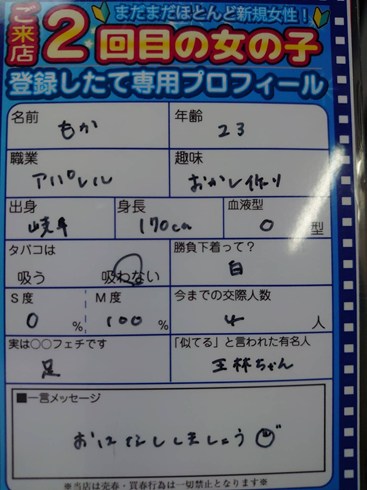 ご来店
まだまだほとんど新規女性！
2回目の女の子
登録したて専用プロフィール
名前 年齢
もか 23
職業 趣味
アパレル おかし作り
出身 身長 血液型
岐阜 170cm O 型
タバコは 勝負下着って？
吸う 吸わない 白
S度 M度 今までの交際人数
0 % 100 % 4 人
実は○○フェチです 「似てる」と言われた有名人
足 王林ちゃん
■一言メッセージ
おはなししましょう
※当店は売春・買春行為は一切禁止となります※